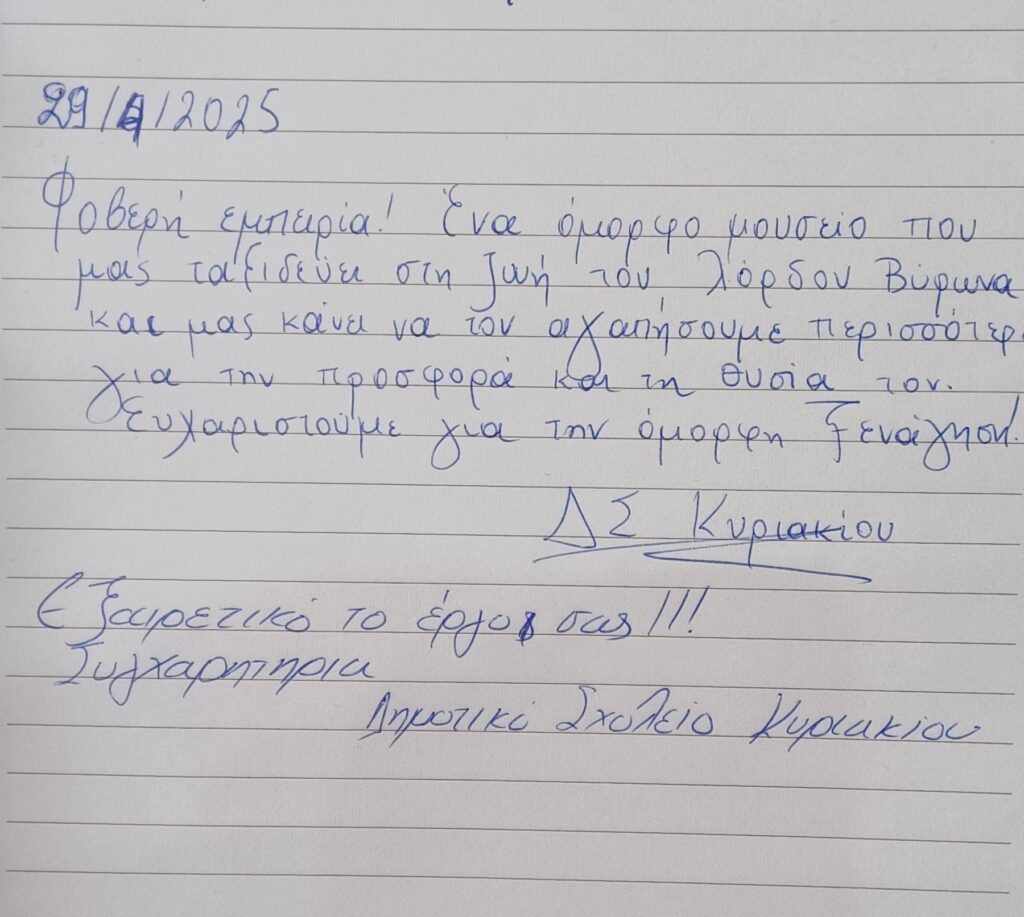 29/4/2025
Φοβερή εμπειρία! Ένα όμορφο μουσείο που
μας ταξιδεύει στη ζωή του λόρδου Βύρωνα
και μας κάνει να τον αγαπήσουμε περισσότερ
για την προσφορά και τη θυσία του.
Ευχαριστούμε για την όμορφη ξενάγηση!
ΔΣ Κυριακίου
Εξαιρετικό το έργο σας!!!
Συγχαρητηρια
Δημοτικό Σχολείο Κυριακίου